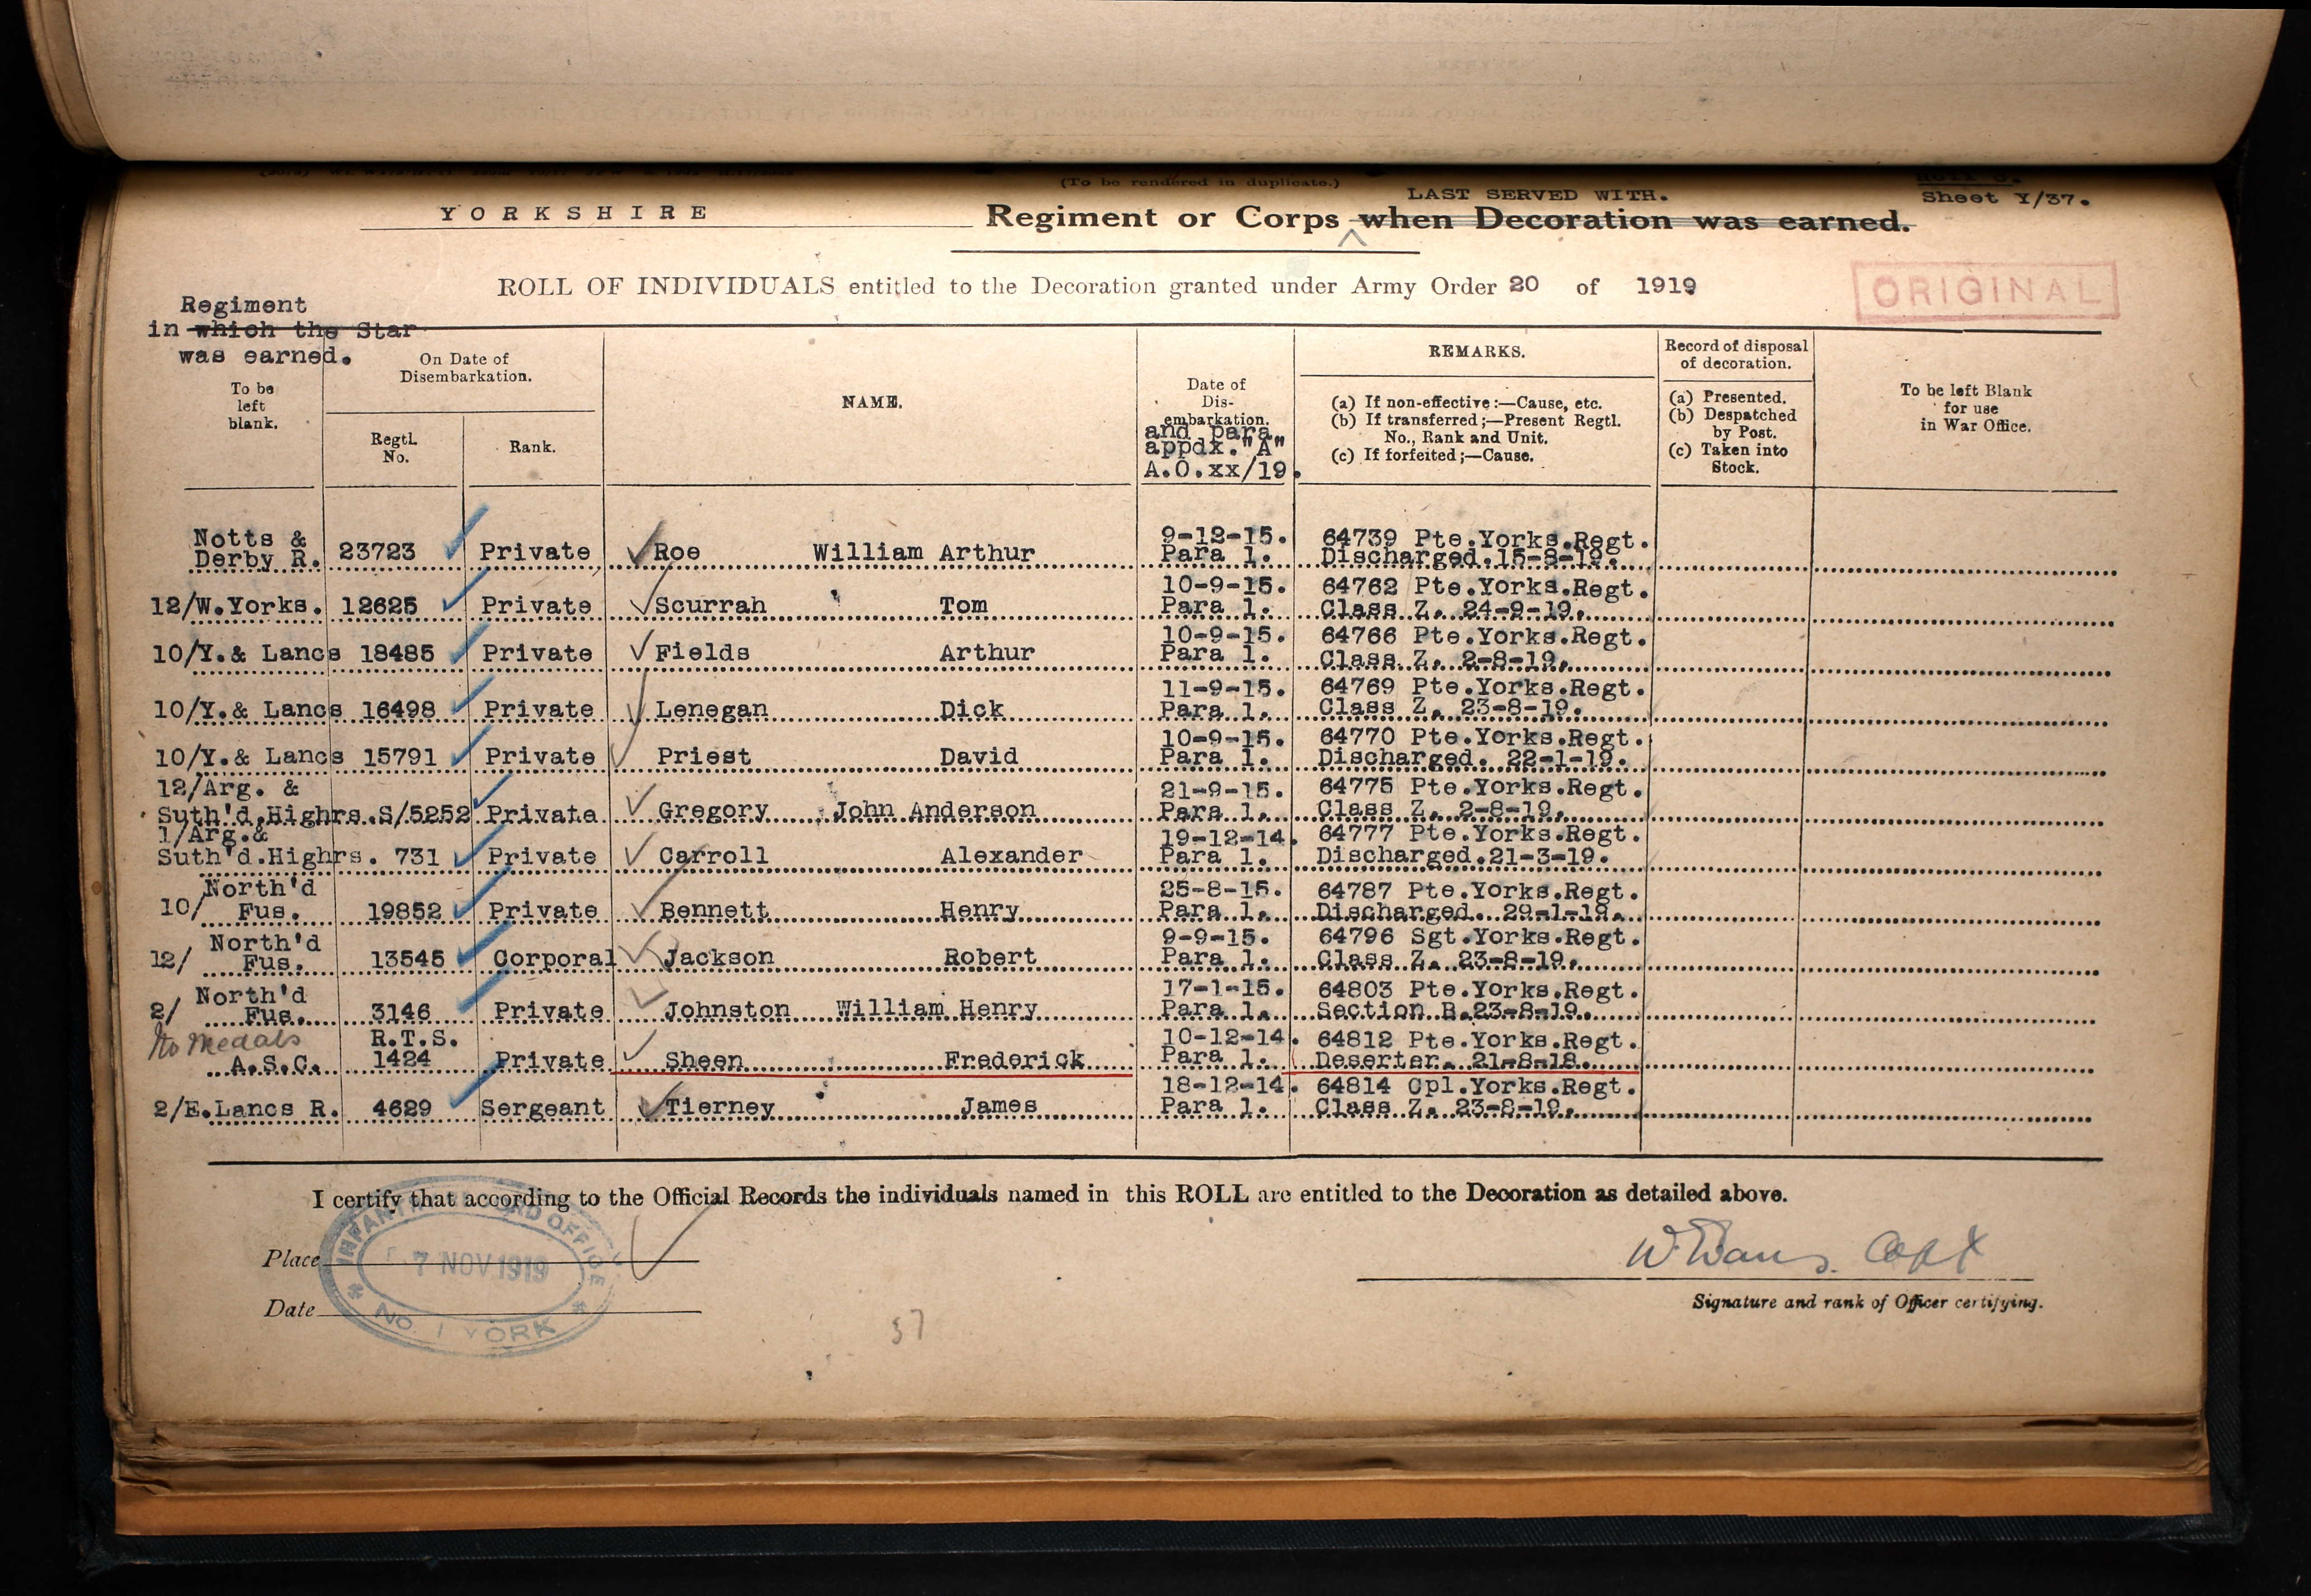 (To be rendered in duplicate.)
LAST SERVED WITH.
Sheet Y/37.
YORKSHIRE Regiment or Corps when Decoration was earned.
ROLL OF INDIVIDUALS entitled to the Decoration granted under Army Order 20 of 1919
ORIGINAL
Regiment
in which the Star
was earned.
To be
left
blank.
On Date of
Disembarkation.
Regtl.
No.
Rank.
NAME.
Date of
Dis-
embarkation.
and para.
appdx."A"
A.O.xx/19.
REMARKS.
(a) If non-effective:—Cause, etc.
(b) If transferred;—Present Regtl.
No., Rank and Unit.
(c) If forfeited;—Cause.
Record of disposal
of decoration.
(a) Presented.
(b) Despatched
by Post.
(c) Taken into
Stock.
To be left Blank
for use
in War Office.
Notts & 9-12-15. 64739 Pte.Yorks.Regt.
Derby R. 23723 Private Roe William Arthur Para 1. Discharged.15-8-19.
10-9-15. 64762 Pte.Yorks.Regt.
12/W.Yorks. 12625 Private Scurrah Tom Para 1. Class Z. 24-9-19.
10-9-15. 64766 Pte.Yorks.Regt.
10/Y.& Lancs 18485 Private Fields Arthur Para 1. Class Z. 2-8-19.
11-9-15. 64769 Pte.Yorks.Regt.
10/Y.& Lancs 16498 Private Lenegan Dick Para 1. Class Z. 23-8-19.
10-9-15. 64770 Pte.Yorks.Regt.
10/Y.& Lancs 15791 Private Priest David Para 1. Discharged. 22-1-19.
12/Arg. & 21-9-15. 64775 Pte.Yorks.Regt.
Suth'd.Highrs.S/5252 Private Gregory John Anderson Para 1. Class Z. 2-8-19.
1/Arg.& 19-12-14. 64777 Pte.Yorks.Regt.
Suth'd.Highrs. 731 Private Carroll Alexander Para 1. Discharged.21-3-19.
North'd 25-8-15. 64787 Pte.Yorks.Regt.
10/ Fus. 19852 Private Bennett Henry Para 1. Discharged. 29-1-19.
North'd 9-9-15. 64796 Sgt.Yorks.Regt.
12/ Fus. 13545 Corporal Jackson Robert Para 1. Class Z. 23-8-19.
North'd 17-1-15. 64803 Pte.Yorks.Regt.
2/ Fus. 3146 Private Johnston William Henry Para 1. Section B.23-8-19.
No Medals R.T.S. 10-12-14. 64812 Pte.Yorks.Regt.
A.S.C. 1424 Private Sheen Frederick Para 1. Deserter. 21-8-18.
18-12-14. 64814 Cpl.Yorks.Regt.
2/E.Lancs R. 4629 Sergeant Tierney James Para 1. Class Z. 23-8-19.
I certify that according to the Official Records the individuals named in this ROLL are entitled to the Decoration as detailed above.
INFANTRY RECORD OFFICE
7 NOV 1919
No. 1 YORK
Place
Date
W. Evans. Capt
Signature and rank of Officer certifying.
37